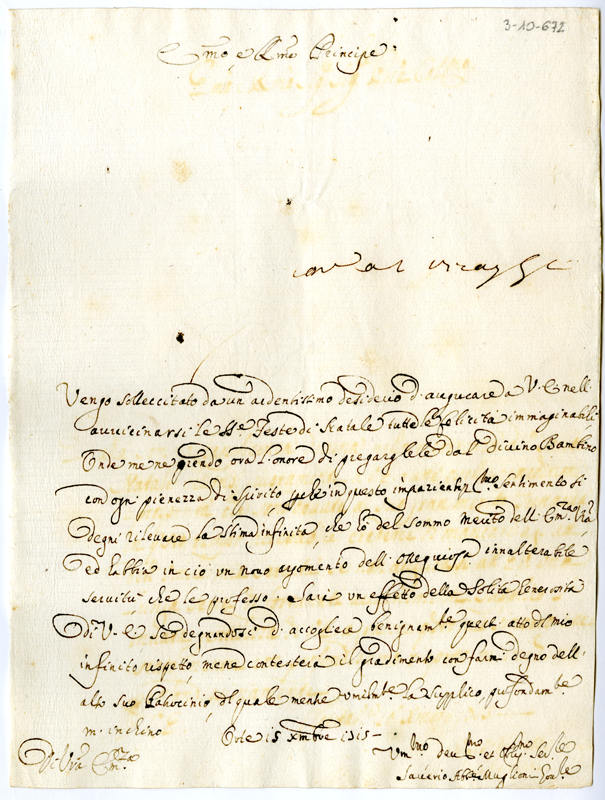 3-10-672
Emo e Rmo Principe
Vengo sollecitato da un ardentissimo desiderio d'augurare a V. E. nell'
avvicinarsi le SSe Feste di Natale tutte le felicità immaginabili
Onde me ne prendo ora l'onore di pregargliele dal divino Bambino
con ogni pienezza di spirito, in questo impazientissmo sentimento si
degni rilevare la stima infinita, che hò del sommo merito dell'Emza Vra
ed habbia in ciò un novo argomento dell'ossequiosa innalterabile
servitù che le professo. Sarà un effetto della solita Generosità
Di V. E. se degnandosi d'accogliere benignamte quest'atto del mio
infinito rispetto, me ne contesterà il gradimento con farmi degno dell'
alto suo Patrocinio, del quale mentre umilmte la supplico, profondamte
m'inchino
Orte 15 Xmbre 1715
Di Vra Emza
Vmmo devmo et oblmo serre
Saverio